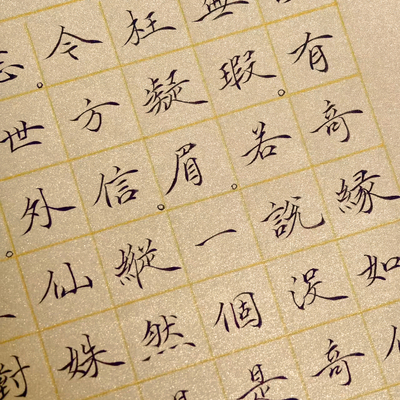 有奇緣如
無瑕。若說沒奇
枉凝眉。一個是
今方信。縱然是
忘。世外仙姝
對